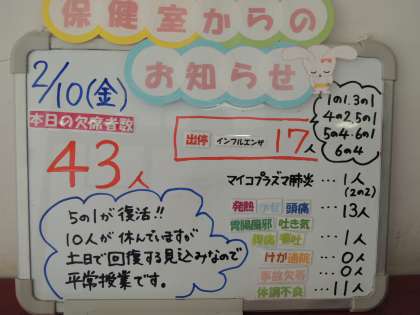 保健室からの
お知らせ
2/10(金)
本日の欠席者数
43人
出停 インフルエンザ 17人
1の1.3の1
4の2.5の1
5の4.6の1
6の4
マイコプラズマ肺炎…1人
(2の2)
発熱 かぜ 頭痛…13人
胃腸風邪 吐き気
腹痛 嘔吐…1人
けが通院…0人
事故欠等…0人
体調不良…11人
5の1が復活!!
10人が休んでいますが
土日で回復する見込みなので
平常授業です。